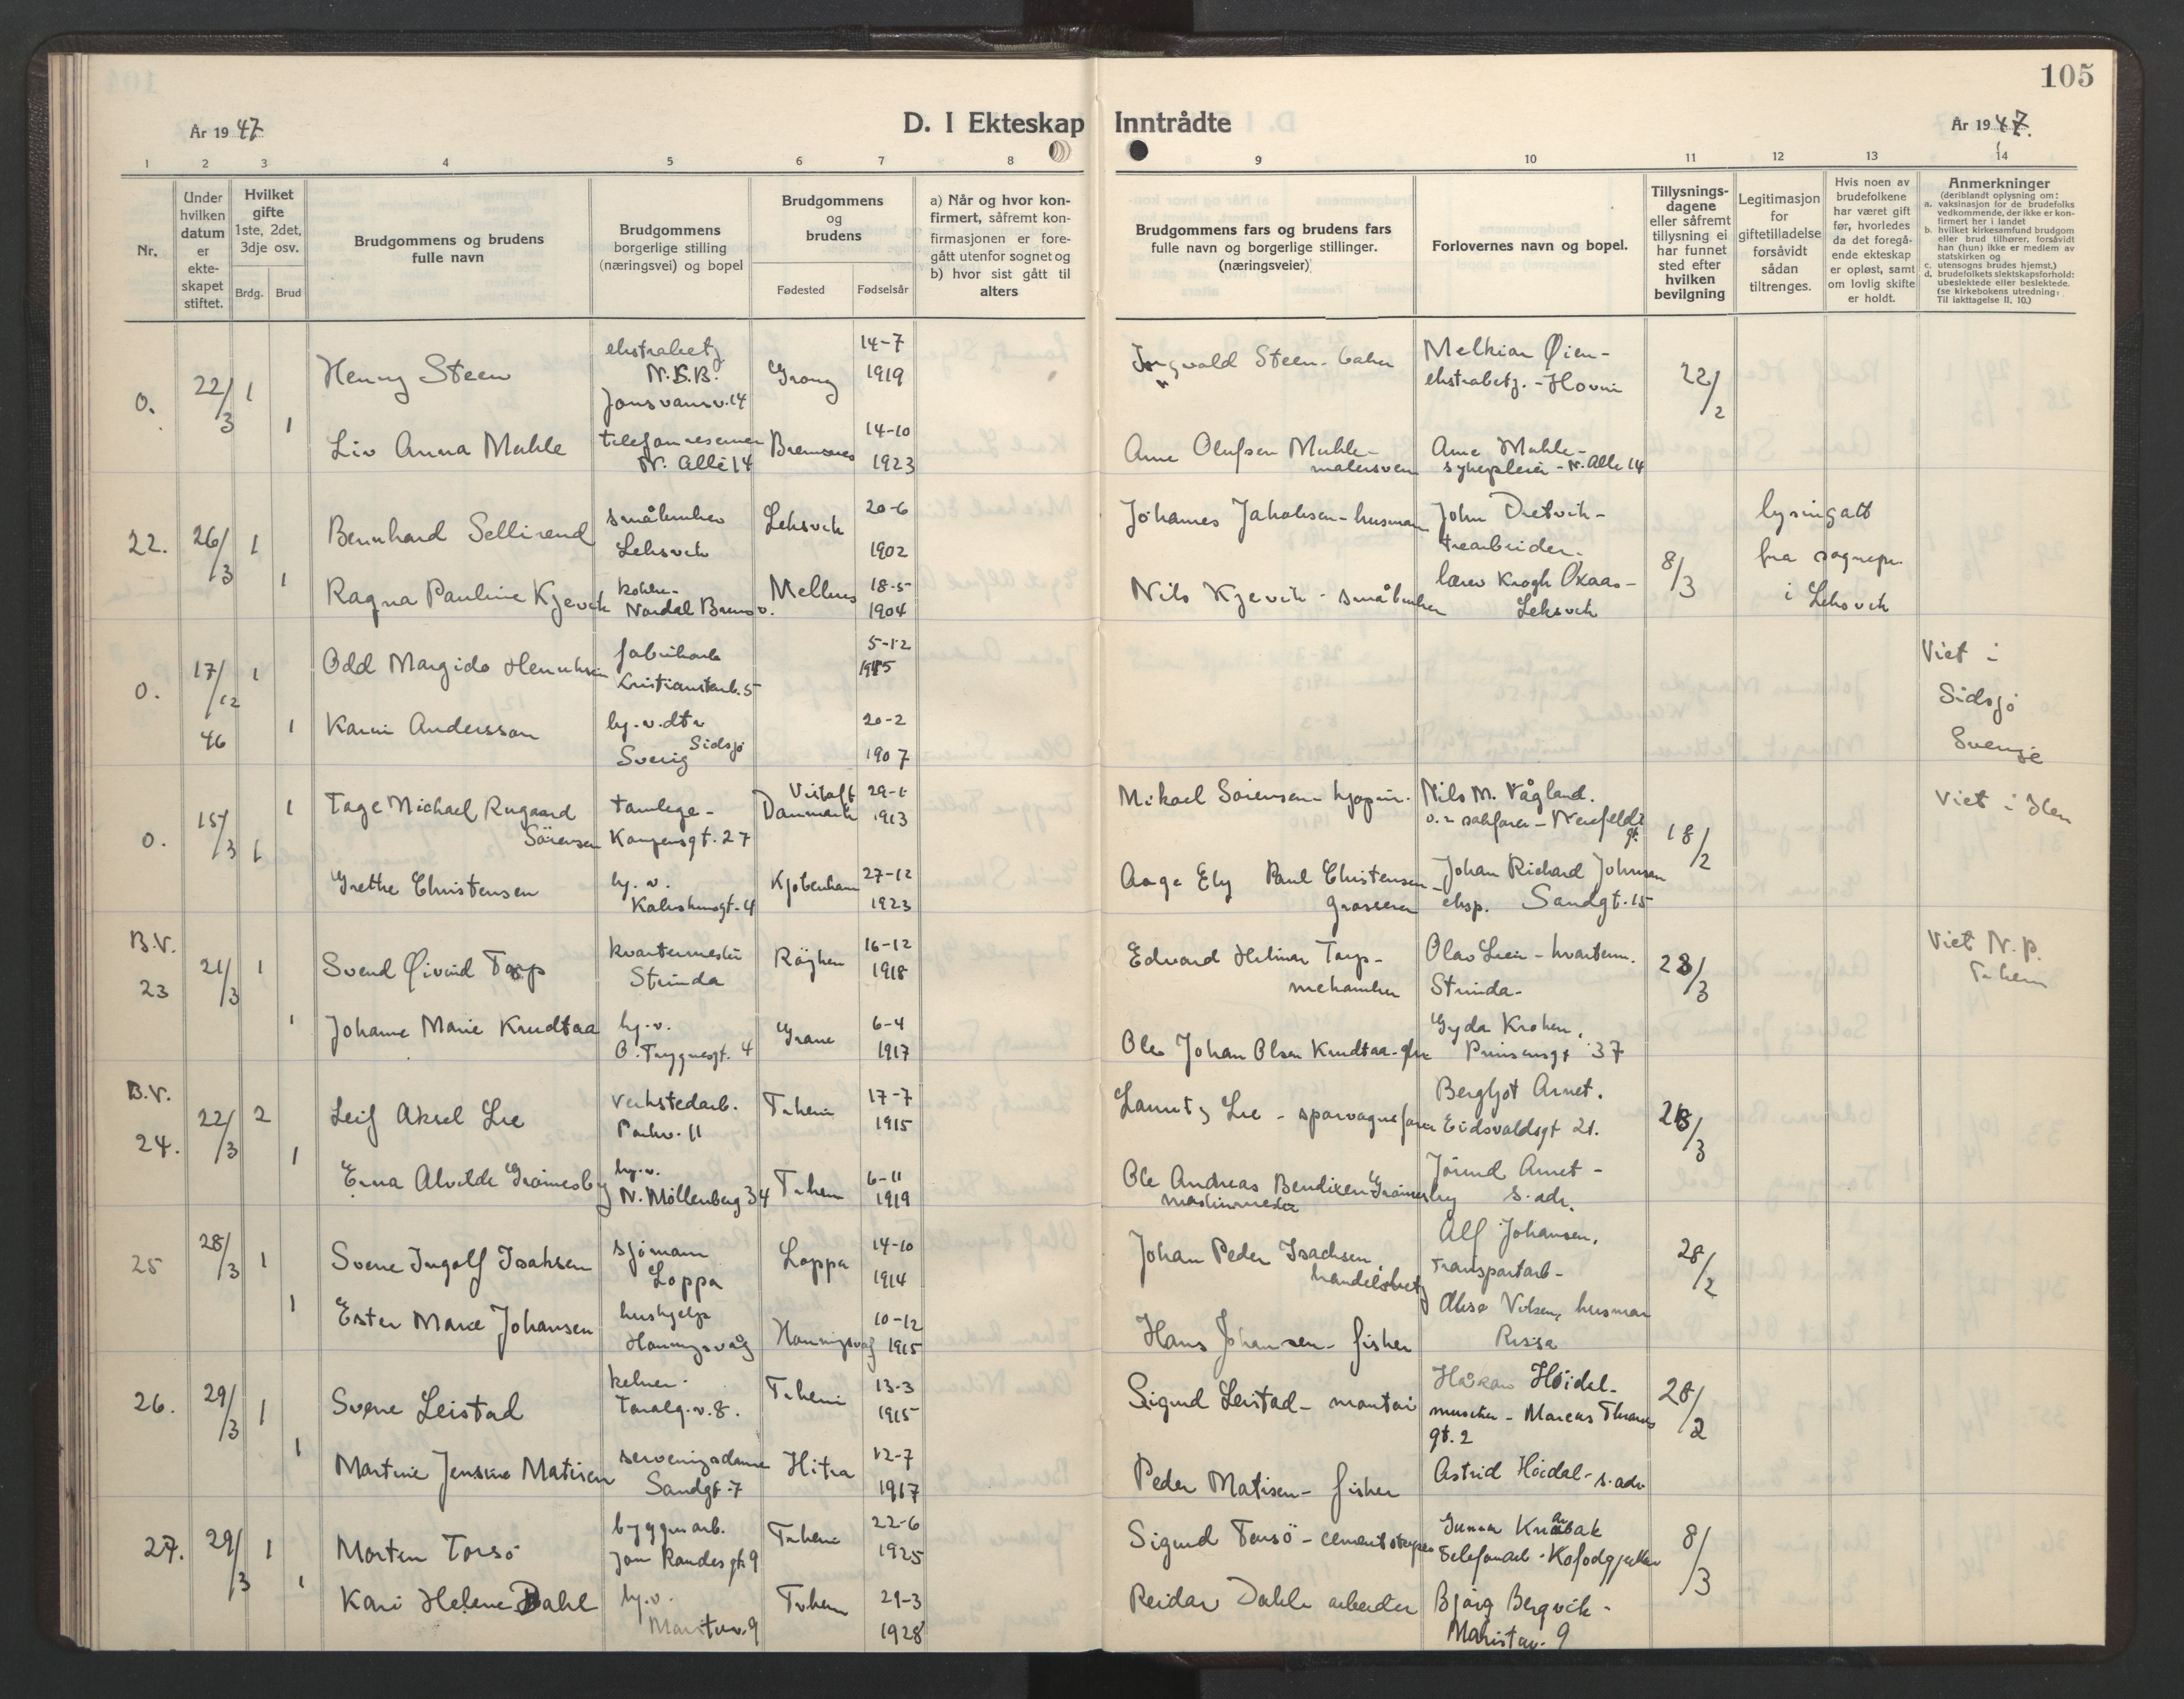 105
År 1947
D. I Ekteskap Inntrådte
År 1947.
1 2 3 4 5 6 7 8 9 10 11 12 13 14
Nr.
Under
hvilken
datum
er
ekte-
skapet
stiftet.
Hvilket
gifte
1ste, 2det,
3dje osv.
Brdg. Brud
Brudgommens og brudens
fulle navn
Brudgommens
borgerlige stilling
(næringsvei) og bopel
Brudgommens
og
brudens
Fødested Fødselsår
a) Når og hvor kon-
firmert, såfremt kon-
firmasjonen er fore-
gått utenfor sognet og
b) hvor sist gått til
alters
Brudgommens fars og brudens fars
fulle navn og borgerlige stillinger.
(næringsveier)
Forlovernes navn og bopel.
Tillysnings-
dagene
eller såfremt
tillysning ei
har funnet
sted efter
hvilken
bevilgning
Legitimasjon
for
giftetilladelse
forsåvidt
sådan
tiltrenges.
Hvis noen av
brudefolkene
har været gift
før, hvorledes
da det foregå-
ende ekteskap
er opløst, samt
om lovlig skifte
er holdt.
Anmerkninger
(deriblandt oplysning om:
a. vaksinasjon for de brudefolks
vedkommende, der ikke er kon-
firmert her i landet
b. hvilket kirkesamfund brudgom
eller brud tilhører, forsåvidt
han (hun) ikke er medlem av
statskirken og
c. utensogns brudes hjemst.)
d. brudefolkets slektskapsforhold:
ubeslektede eller beslektede.
(se kirkebokens utredning:
Til iakttagelse II. 10.)
0. 22/3 1 Henry Steen
ekstrabetj
N.S.B.
Jonsvannsv. 14
Grong
14-7
1919
Ingvald Steen - baker
Melkior Øien -
ekstrabetj. - Hovin
22/2
1 Liv Anna Muhle
N. Allé 14
14-10
1923
Arne Olufsen Muhle -
malersvenn
Arne Muhle -
sykepleier - N. Alle 14
22. 26/3 1 Bernhard Sellirend
småbruker
Leksvik
Leksvik
20-6
1902
Johannes Jakobsen - husmann
John Dretvik -
trearbeider.
8/3
lysingatt
fra sognepr.
i Leksvik
1 Ragna Pauline Kjevik
kokke -
Nordal Brunsv.
Melhus
18-5
1904
Nils Kjevik - småbruker
lærer Krogh Oxaas -
Leksvik
0. 17/12 46 1 Odd Margido Henriksen
fabrikarb
Kristianstenb. 5
5-12
1915
Viet i
Sidsjö
Sverige
1 Karin Andersson
hj. v. dtr
Sidsjö
Sverig
20-2
1907
0. 15/3 1 Tage Michael Rugaard
Sörensen
tannlege -
Kongensgt. 27
Danmark
29-1
1913
Mikael Sörensen - kjøpm.
Nils M. Vågland.
o.r. sakfører -
18/2
Viet i Hlen
1 Grethe Christensen
hj. v.
Kjøbenhavn
27-12
1923
Aage Ely Paul Christensen -
grosserer
Johan Richard Johnsen
eksp. Sandgt. 15
B.V.
23 21/3 1 Svend Øivind Torp
kvartermester
Strinda
Röyken
16-12
1918
Edvard Hilmar Torp -
mekaniker
Olav Lien - kvarterm.
Strinda -
23/3
Viet N.P.
Tr.heim
1 Johanne Marie Krudtaa
hj. v.
O. Tryggvesgt. 4
Grane
6-4
1917
Ole Johan Olsen Krudtaa -
Gyda Krohen,
Prinsensgt 37
B.V.
24. 22/3 2 Leif Aksel Lie
verkstedarb.
Parkv. 11
Tr.heim
17-7
1915
Lauritz Lie - sporvognsfører
Bergljot Arnet.
Eidsvoldsgt 21.
1 Erna Alvilde Grönnesby
hj. v.
N. Möllenberg 34
Tr.heim
6-11
1919
Ole Andreas Bendixen Grönnesby
maskinmester
Jörund Arnet -
s. adr.
25 28/3 1 Sverre Ingolf Isaksen
sjömann
Loppa
Loppa
14-10
1914
Johan Peder Isachsen,
handelsbetj
Alf Johansen,
Transportarb -
28/2
1 Ester Marie Johansen
hushjelp
Honningsvåg
Honningsvåg
10-12
1915
Hans Johansen - fisker
husmor
Rissa
26. 29/3 1 Sverre Leistad
kelner -
Tr.heim
13-3
1915
Sigurd Leistad - montör
Håkon Höidal -
musiker - Marcus Thranes
gt. 2
28/2
1 Martine Jensine Matisen
serveringsdame
Sandgt. 7
Hitra
12-7
1917
Peder Matisen - fisker
Astrid Höidal - s. adr
27. 29/3 1 Morten Torsö
bygnarb.
Tr.heim
22-6
1925
Sigurd Torsö - cementstøper
8/3
1 Kari Helene Dahl
hj. v.
Maristuv. 9
Tr.heim
29-3
1928
Reidar Dahl arbeider
Bjørg Bergvik -
Maristuv. 9